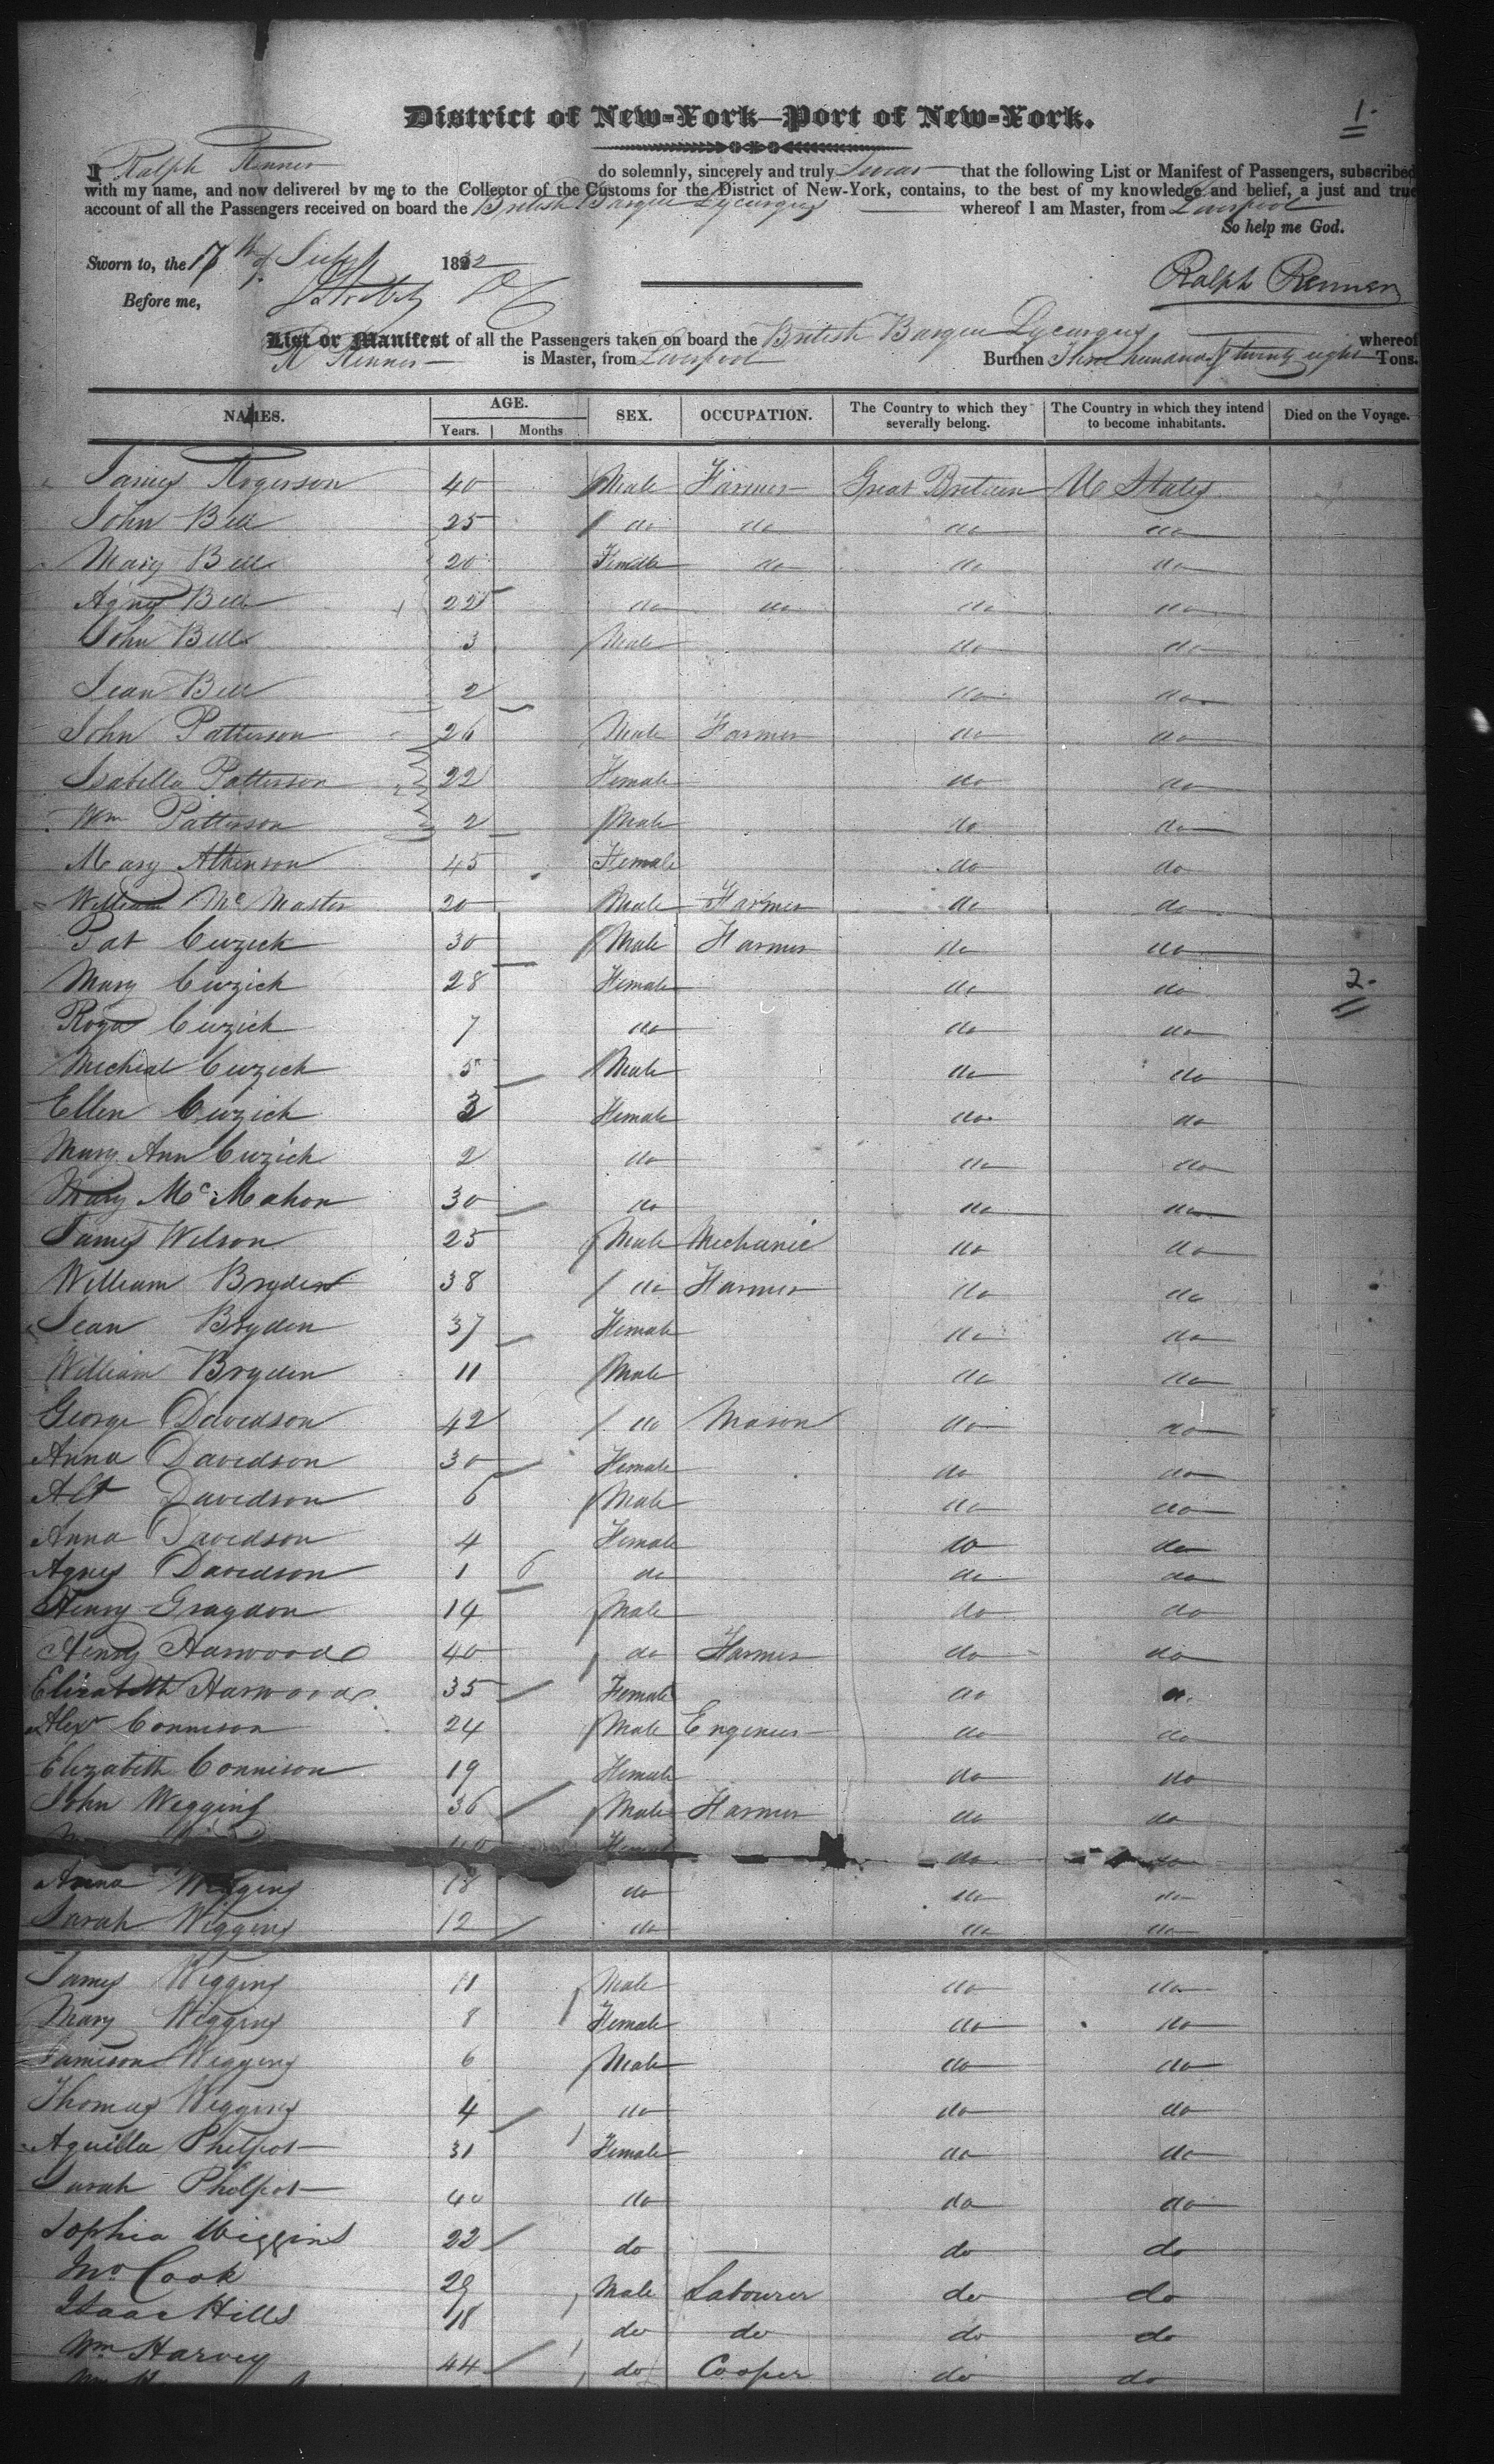 1.
District of New-York—Port of New-York.
I Ralph Renner do solemnly, sincerely and truly swear that the following List or Manifest of Passengers, subscribed
with my name, and now delivered by me to the Collector of the Customs for the District of New-York, contains, to the best of my knowledge and belief, a just and true
account of all the Passengers received on board the British Barque Lycurgus whereof I am Master, from Liverpool
So help me God.
Sworn to, the 17th of July 1832
Ralph Renner
Before me,
List or Manifest of all the Passengers taken on board the British Barque Lycurgus whereof
R Renner is Master, from Liverpool Burthen Three hundred & twenty eight Tons.
NAMES. AGE. SEX. OCCUPATION. The Country to which they severally belong. The Country in which they intend to become inhabitants. Died on the Voyage.
Years. Months
James Rogerson 40 Male Farmer Great Britain U States
John Bell 25 do do do do
Mary Bell 20 Female do do do
Agnes Bell 22 do do do do
John Bell 3 Male do do
Jean Bell 2 do do
John Patterson 26 Male Farmer do do
Isabella Patterson 22 Female do do
Wm Patterson 2 Male do do
Mary Atkinson 45 Female do do
William McMaster 20 Male Farmer do do
Pat Cuzick 30 Male Farmer do do
Mary Cuzick 28 Female do do 2.
Cuzick 7 do do do
Micheal Cuzick 5 Male do do
Ellen Cuzick 3 Female do do
Mary Ann Cuzick 2 do do do
Mary McMahon 30 do do do
James Wilson 25 Male Mechanic do do
William Bryden 38 do Farmer do do
Jean Bryden 37 Female do do
William Bryden 11 Male do do
George Davidson 42 do Mason do do
Anna Davidson 30 Female do do
Davidson 6 Male do do
Anna Davidson 4 Female do do
Agnes Davidson 1 6 do do do
Henry Graydon 14 Male do do
Henry Harwood 40 do Farmer do do
Elizabeth Harwood 35 Female do
Alexr Connison 24 Male Engineer do do
Elizabeth Connison 19 Female do do
John Wiggins 36 Male Farmer do do
40 Female do do
Anna Wiggins 18 do do do
Sarah Wiggins 12 do do do
James Wiggins 11 Male do do
Mary Wiggins 8 Female do do
Jamison Wiggins 6 Male do do
Thomas Wiggins 4 do do do
Aquilla Phelpot 31 Female do do
Sarah Phelpot 40 do do do
Sophia Wiggins 22 do do do
Jno Cook 29 Male Labourer do do
Isaac Hills 18 do do do do
Wm Harvey 44 do Cooper do do